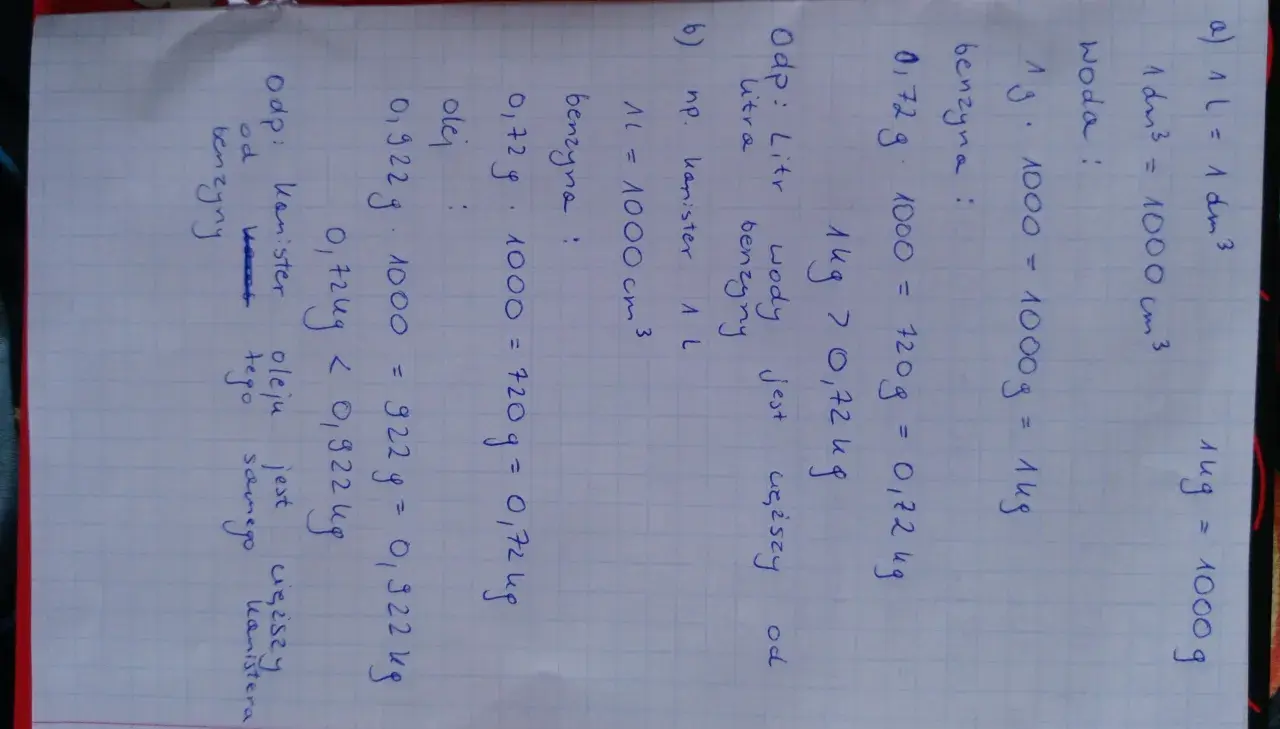 a) 1 L = 1 dm³ 1 kg = 1000 g
1 dm³ = 1000 cm³
woda :
1 g · 1000 = 1000g = 1 kg
benzyna :
0,72 g · 1000 = 720g = 0,72 kg
1 kg > 0,72 kg
Odp: Litr wody jest cięższy od
litra benzyny
b) np. kanister 1 L
1L = 1000 cm³
benzyna :
0,72 g · 1000 = 720 g = 0,72 kg
olej :
0,922 g · 1000 = 922 g = 0,922 kg
0,72 kg < 0,922 kg
Odp: kanister oleju jest cięższy
od tego samego kanistera
benzyny